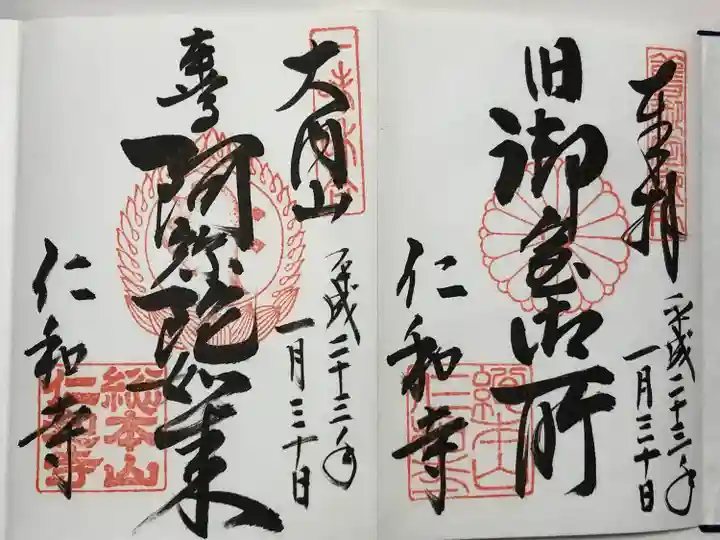 奉拝
旧御室御所
平成二十三年
一月三十日
仁和寺
大内山
阿弥陀如来
平成二十三年
一月三十日
仁和寺
総本山
仁和寺